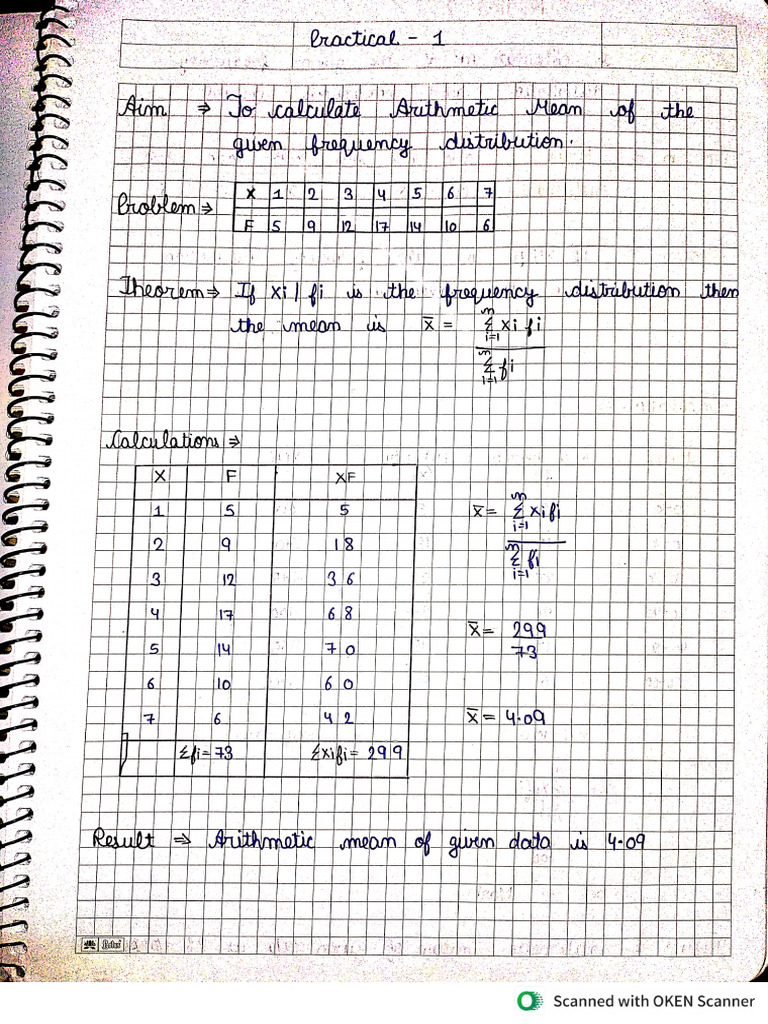 Practical - 1
Aim ⇒ To calculate Arithmetic Mean of the
given frequency distribution.
Problem ⇒
X 1 2 3 4 5 6 7
F 5 9 12 17 14 10 6
Theorem ⇒ If xi / fi is the frequency distribution then
the mean is x̄ = n Σ i=1 xi fi / n Σ i=1 fi
Calculations ⇒
X F XF
1 5 5
2 9 18
3 12 36
4 17 68
5 14 70
6 10 60
7 6 42
Σfi = 73 Σxifi = 299
x̄ = n Σ i=1 xifi / n Σ i=1 fi
x̄ = 299
73
x̄ = 4.09
Result ⇒ Arithmetic mean of given data is 4.09
Scanned with OKEN Scanner